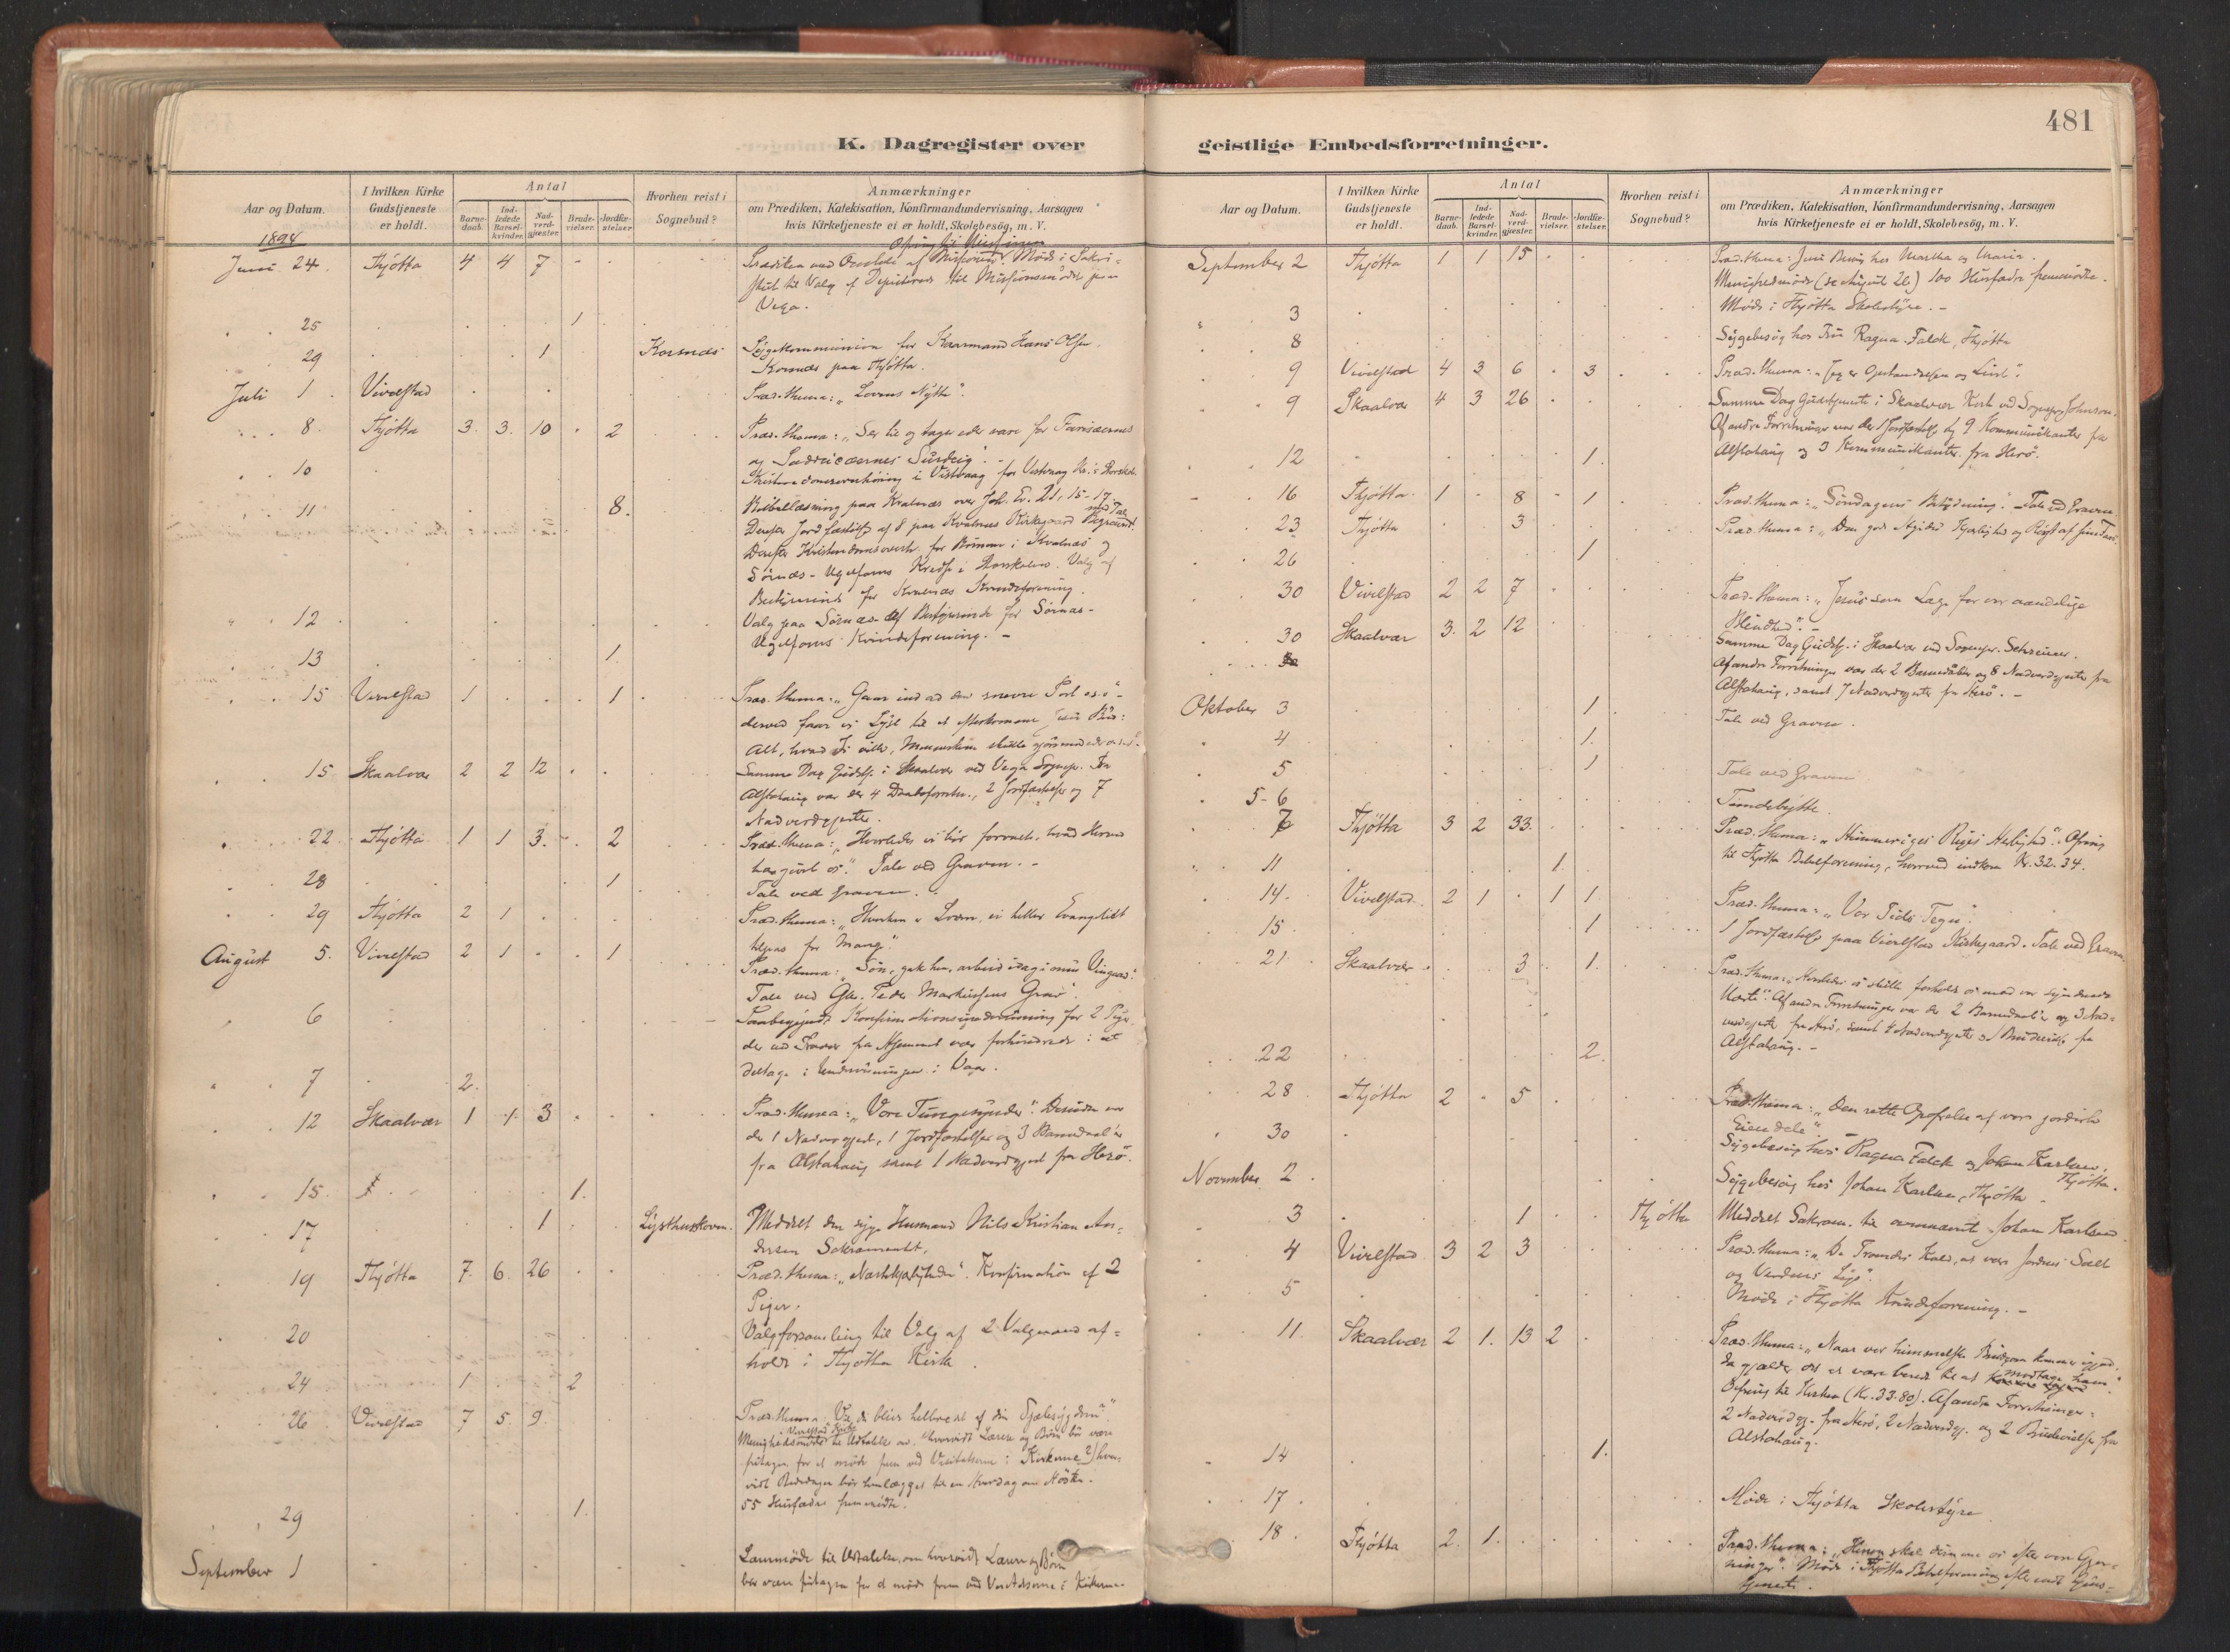 481
K. Dagregister over geistlige Embedsforretninger.
Aar og Datum. I hvilken Kirke Gudstjeneste er holdt. Antal Barnedaab. Indledede Barselkvinder. Nadverdgjæster. Brudevielser. Jordfæstelser. Hvorhen reist i Sognebud? Anmærkninger om Prædiken, Katekisation, Konfirmandundervisning, Aarsagen hvis Kirketjeneste ei er holdt, Skolebesøg, m. V.
1894
Juni 24. Thjøtta 4 4 7 Prædiken
til Valg af Deputerede til Missionsmødet paa
Vega.
25 1
29 1 Kornnæs Sygekommunion for Kaarmand Hans Olsen,
Kornnæs paa Thjøtta.
Juli 1 Vivelstad Præd. thema: „Lovens Nytte".
8. Thjøtta 3. 3. 10 2 Præd. thema: „Ser til og tager eder vare for Farisæernes
og Sadducæernes Surdeig".
10
11 8. Bibellæsning paa Kvalnæs over Joh. Ev. 21, 15-17.
Derefter Jordfæstelse af 8 paa Kvalnæs Kirkegaard
Derefter for Børnene i Kvalnæs og
Sørnæs-Ugelfarnes Kredse i Storskolen. Valg af
Bestyrerinde for Kvalnæs Kvindeforening.
12 Valg paa Sørnæs af Bestyrerinde for Sørnæs-
Ugelfarnes Kvindeforening. -
13 1.
15 Vivelstad 1 1 Præd. thema: „Gaar ind ad den snevre Port
Alt, hvad I ville, Menneskene skulle
15 Skaalvær 2 2 12 Samme Dag Gudstj. i Skaalvær ved Vega Sognepr. Fra
Alstahaug var der 4 2 Jordfæstelser og 7
Nadverdgjester.
22 Thjøtta 1 1 3 2 Præd. thema: „Hvorledes vi bør hvad Herren
har gjort os". Tale ved Graven. -
28 1 Tale ved Graven.
29 Thjøtta 2 1 Præd. thema: „Hverken Loven, ei heller Evangeliet
for Mange".
August 5. Vivelstad 2 1 1 Præd. thema: „Søn, gak hen, arbeid idag i min Vingaard".
Tale ved Peder Markussens Grav.
6 Paabegyndt Konfirmationsundervisning for 2 Piger
der ved fra var forhindrede i at
deltage i Undervisningen i Vaar.
7 2.
12 Skaalvær 1 1 3 Præd. thema: „Vore Tungesynder". Desuden var
der 1 Nadverdgjest, 1 Jordfæstelse og 3 Barnedaab
fra Alstahaug samt 1 Nadverdgjest fra Herø.
15. 1.
17 1 Meddelt den syge Husmand Nils Kristian An-
dersen Sakramentet.
19 Thjøtta 7. 6. 26 Præd. thema: „Næstekjærligheden". Konfirmation af 2
Piger.
20 Valgforsamling til Valg af 2 Valgmænd af-
holdt i Thjøtta Kirke.
24 1 2
26 Vivelstad 7 5 9
Menighedsmøde hvorvidt Lærere og Børn bør være
pligtige for at møde frem ved Visitatserne i Kirkerne
55 Husfædre fremmødte.
29 1.
September 1 Læremøde til Udtalelse om hvorvidt Lærere og Børn
bør være pligtige for at møde frem ved Visitatserne i Kirkerne.
Aar og Datum. I hvilken Kirke Gudstjeneste er holdt. Antal Barnedaab. Indledede Barselkvinder. Nadverdgjæster. Brudevielser. Jordfæstelser. Hvorhen reist i Sognebud? Anmærkninger om Prædiken, Katekisation, Konfirmandundervisning, Aarsagen hvis Kirketjeneste ei er holdt, Skolebesøg, m. V.
September 2 Thjøtta 1 1 15 Præd. thema: Jesu Besøg hos Martha og Maria.
Menighedsmøde (se August 26) 100 Husfædre fremmødte.
3 Møde i Thjøtta Skolestyre. -
8 Sygebesøg hos Fru Ragna Falck, Thjøtta
9 Vivelstad 4 3 6 3 Præd. thema: „Jeg er Opstandelsen og Livet".
9 Skaalvær 4 3 26 Samme Dag Gudstjeneste i Skaalvær Kirke ved Sognepr. Johnson.
Af andre Forretninger var der 1 Jordfæstelse og 9 Kommunikanter fra
12 1. Alstahaug og 3 Kommunikanter fra Herø.
16 Thjøtta 1 8 1 Præd. thema: „Søndagens Betydning". Tale ved Graven.
23 Thjøtta 3 Præd. thema:
26 1
30 Vivelstad 2 2 7 Præd. thema: „Jesus som Læge for vor aandelige
Blindhed". -
30 Skaalvær 3. 2 12 Samme Dag Gudstj. i Skaalvær ved Sognepr. Schreiner.
Af andre Forretninger var der 2 Barnedåber og 8 Nadverdgjester fra
Alstahaug, samt 7 Nadverdgjester fra Herø. -
Oktober 3 1. Tale ved Graven.
4 1.
5 1 Tale ved Graven
5-6 Tiendebytte
7 Thjøtta 3 2 33. Præd. thema: „Himmeriges Riges Herlighed". Ofring
til Thjøtta Bibelforening, hvorved indkom Kr. 32.34.
11 1.
14. Vivelstad 2 1 1 1 Præd. thema: „Vor Tids Tegn".
15 1 1 Jordfæstelse paa Vivelstad Kirkegaard. Tale ved Graven.
21 Skaalvær 3 1. Præd. thema: „Hvorledes vi skulle forholde os mod vor syndende
Næste". Af andre Forretninger var der 2 Barnedaab og 3 Nad-
verdgjester fra Herø, samt 4 Nadverdgjester og 1 Brudevielse fra
Alstahaug. -
22 2.
28 Thjøtta 2 5 Præd. thema: „Den rette Opofrelse af vore jordiske
Eiendele".
30 Sygebesøg hos Ragna Falck og Johan Karlsen,
Thjøtta.
November 2 Sygebesøg hos Johan Karlsen, Thjøtta
3 1 Thjøtta Meddelt Sakram. til ovennævnte Johan Karlsen
4 Vivelstad 3 2 3 Præd. thema: „De Troendes Kald, at være Jordens Salt
og Verdens Lys".
5 Møde i Thjøtta Kvindeforening. -
11 Skaalvær 2 1. 13 2 Præd. thema: „Naar vor himmelske Brudgom kommer igjen,
da gjælder det at være beredt til at modtage ham".
Ofring til Kirken (Kr. 33.80). Af andre Forretninger:
2 Nadverdgj. fra Herø, 2 Nadverdgj. og 2 Brudevielser fra
Alstahaug.
14 1.
17 Møde i Thjøtta Skolestyre
18 Thjøtta 2. 1. Præd. thema: „Herren skal dømme os efter vore Gjer-
ninger". Møde i Thjøtta Bibelforening efter endt Guds-
tjeneste.